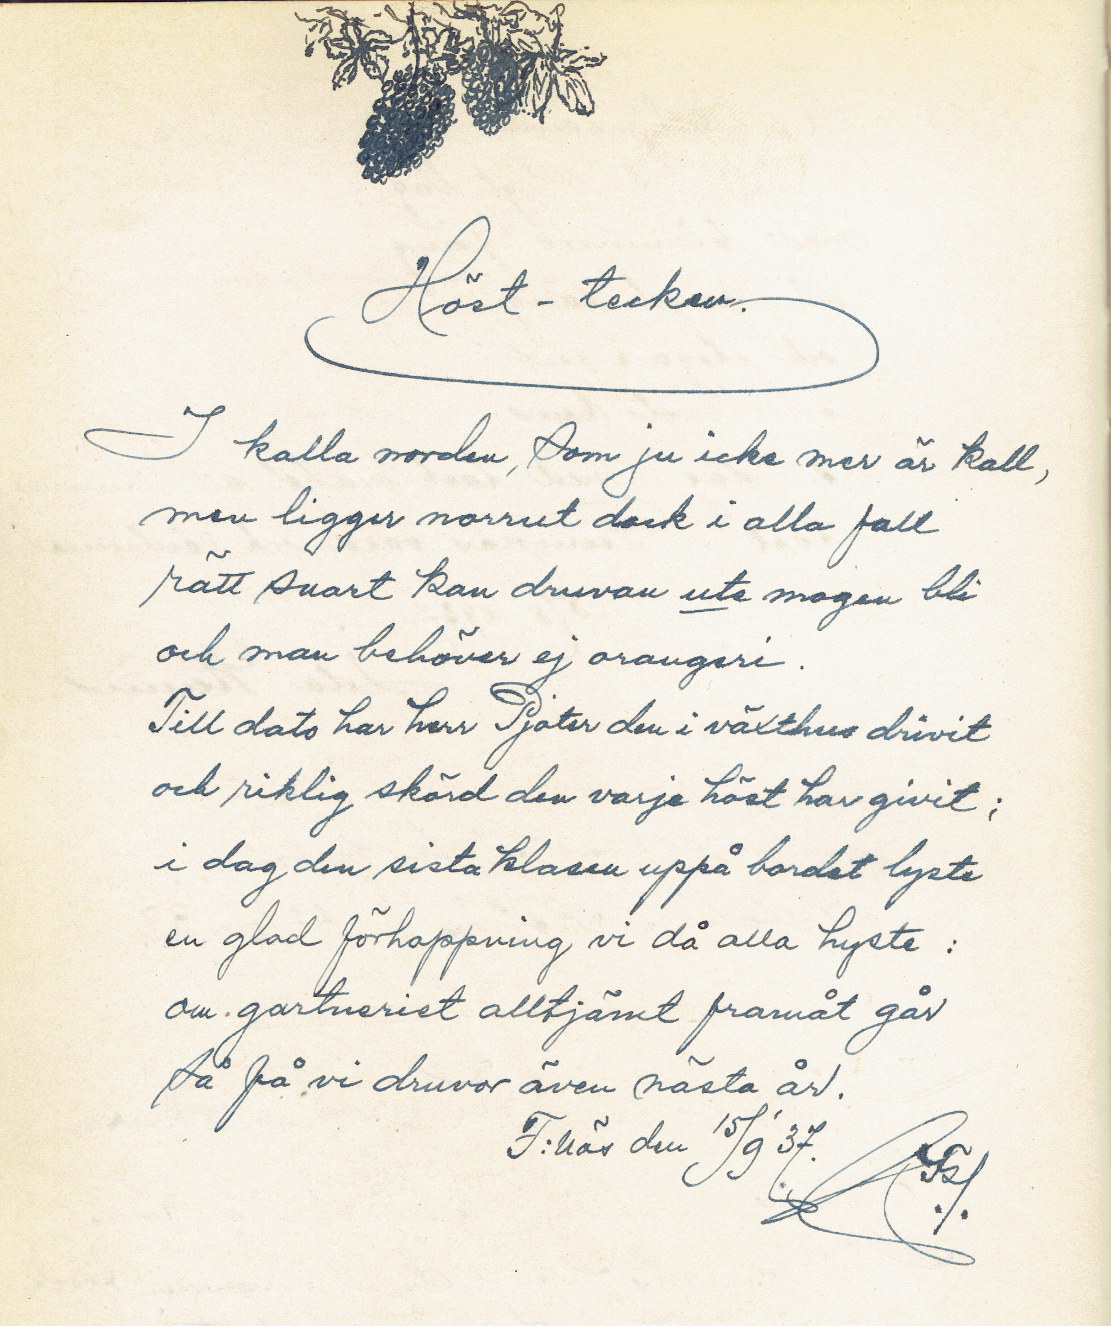 Höst-tecken.
I kalla norden, som ju icke mer är kall,
men ligger norrut dock i alla fall
rätt snart kan druvan ute mogen bli
och man behöver ej orangeri.
Till dato har herr Pjoter den i växthus drivit
och riklig skörd den varje höst har givit;
i dag den sista klasen uppå bordet lyste
en glad förhoppning vi då alla hyste:
om gartneriet alltjämt framåt går
så få vi druvor även nästa år.
T:näs den 15/9 '37.